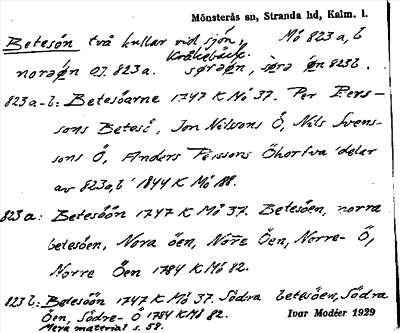 Mönsterås sn, Stranda hd, Kalm. l.
Betesön två kullar vid sjön, Mö 823 a, b
Kråkebäck.
norøn OJ. 823a. sørøn, søra øn 823b.
823 a-b: Betesöarne 1747 K Mö 37. Per Pers-
sons Betesö, Jon Nilssons Ö, Nils Svens-
sons Ö, Anders Perssons Ö delar
av 823a, b 1844 K Mö 188.
823 a: Betesöön 1747 K Mö 37. Betesöen, norra
betesöen, Nora öen, Norre Öen, Norre- Ö,
Norre Öen 1784 K Mö 82.
823 b: Betesöön 1747 K Mö 37. Södra betesöen, Södra
Öen, Södre- Ö 1784 K Mö 82. Ivar Modéer 1929
Mera material s. 58.